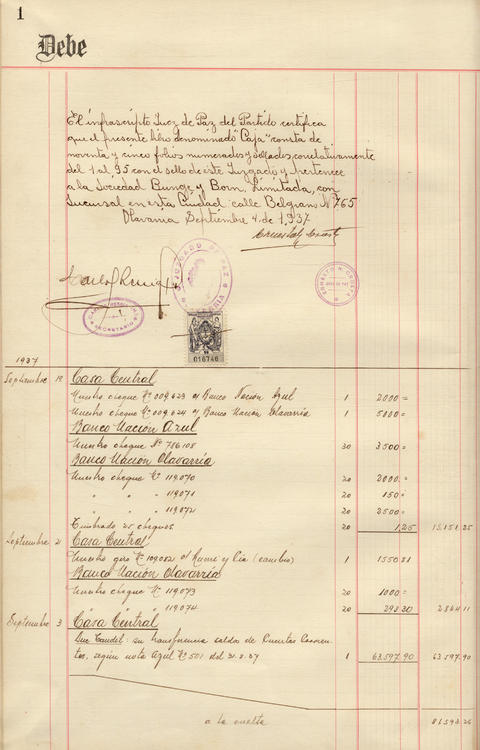 1
Debe
El infrascripto Juez de Paz del Partido certifica
que el presente libro denominado "Caja" consta de
noventa y cinco folios numerados y sellados correlativamente
del 1 al 95 con el sello de este Juzgado y pertenece
a la Sociedad Bunge y Born, Limitada, con
sucursal en esta Ciudad calle Belgrano Nº 765
Olavarria Septiembre 4 de 1,937
JUZGADO DE PAZ
SECRETARIO
016746
1937
Septiembre 18 Casa Central
Nuestro cheque Nº 009,623 c/ Banco Nación Azul 1 2000=
Nuestro cheque Nº 009,624 c/ Banco Nación Olavarria 1 5000=
Banco Nación Azul
Nuestro cheque Nº 786108 30 3500=
Banco Nación Olavarría
Nuestro cheque Nº 119,070 20 2000=
" " " 119,071 20 150=
" " " 119,072 20 2500=
Timbrado 25 cheques 20 1,25 15,151.25
Septiembre 21 Casa Central
Nuestro giro Nº 109,082 c/ y Cía (cambio) 1 1550.81
Banco Nación Olavarría
Nuestro cheque Nº 119,073 20 1000=
" 119,074 20 293.30 2844.11
Septiembre 3 Casa Central
Suc. Tandil: su transferencia saldos de Cuentas Corrien-
tes, según nota Azul Nº 501 del 31.8.37 1 63.597.90 63 597.90
a la vuelta 81593.26